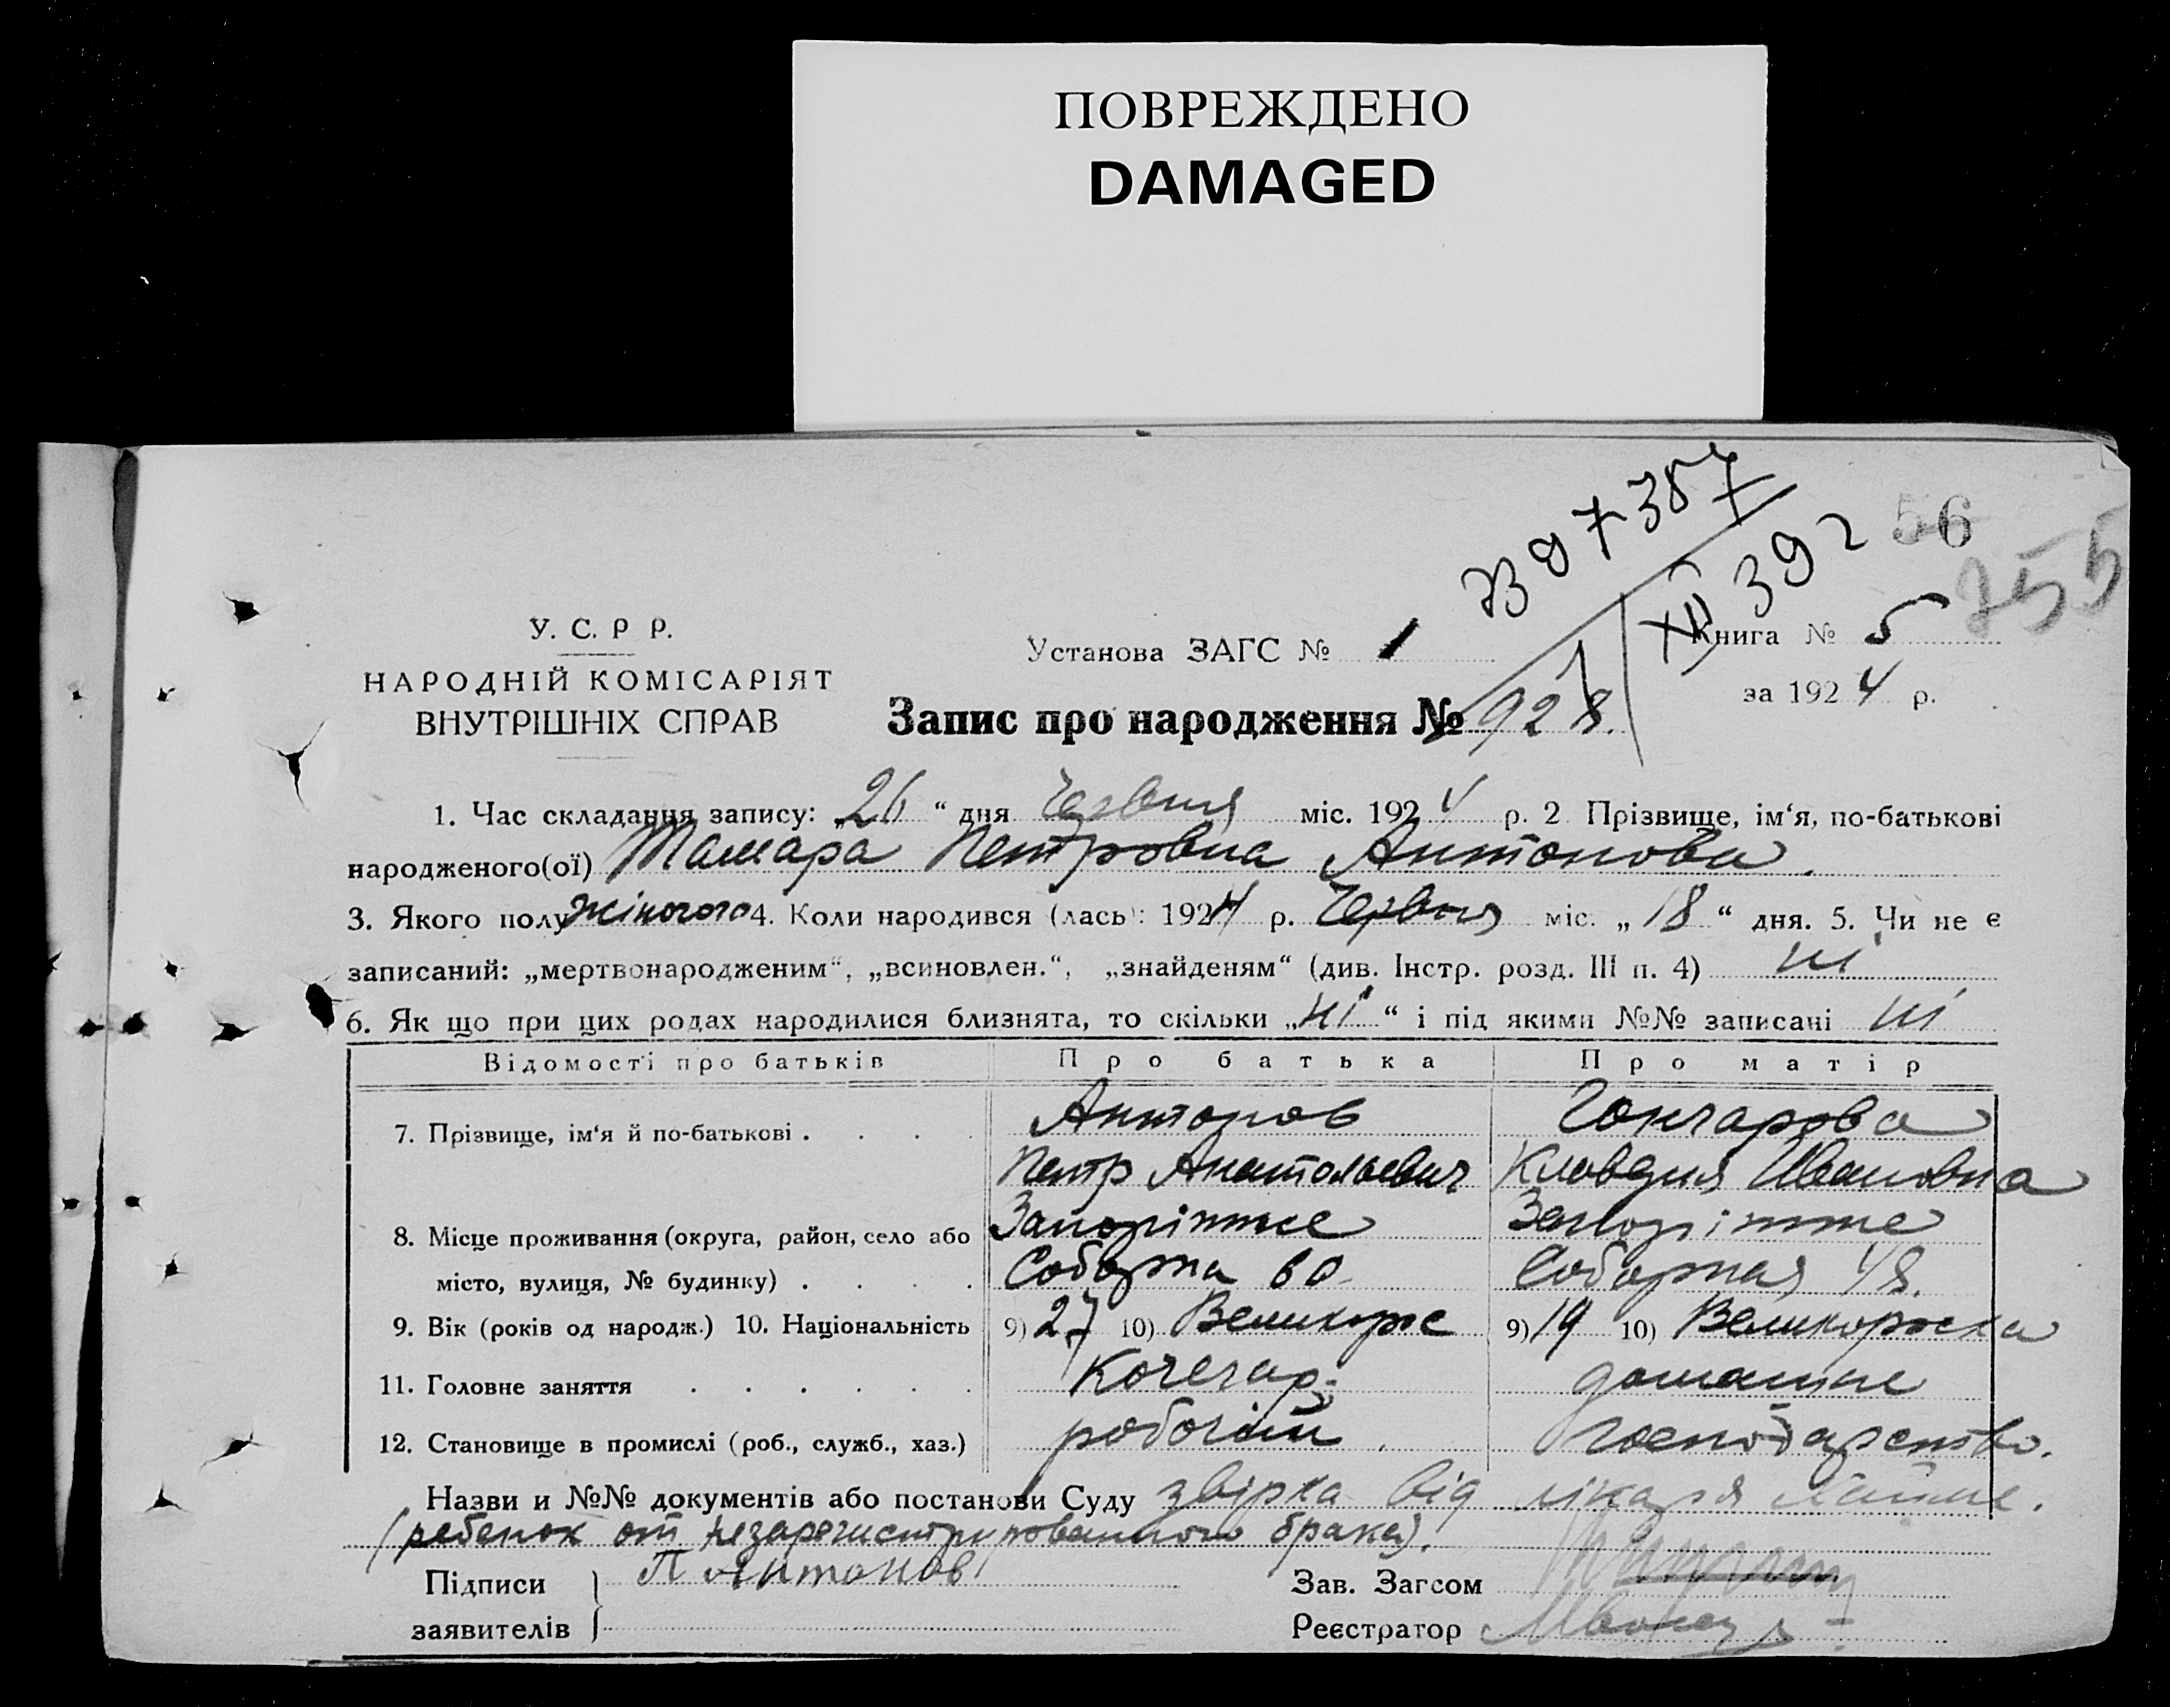 ПОВРЕЖДЕНО
DAMAGED
56
255
У. С. Р Р.
НАРОДНІЙ КОМІСАРІЯТ
ВНУТРІШНІХ СПРАВ
Установа ЗАГС № 1
Книга № 5
за 1924 р.
Запис про народження № 928.
1. Час складання запису: „26“ дня Червня міс. 1924 р. 2 Прізвище, ім‘я, по-батькові
народженого(ої) Тамара Петровна Антонова.
3. Якого полу жіночого 4. Коли народився (лась): 1924 р. Червня міс. „18“ дня. 5. Чи не є
записаний: „мертвонародженим“, „всиновлен.“, „знайденям“ (див. Інстр. розд. III п. 4) ні
6. Як що при цих родах народилися близнята, то скільки „ні“ і під якими №№ записані ні
Відомості про батьків Про батька Про матір
7. Прізвище, ім‘я й по-батькові . . . . Антонов Гончарова
Петр Анатольевич Клавдия Ивановна
8. Місце проживання (округа, район, село або Запоріжже Запоріжже
місто, вулиця, № будинку) . . . . Соборна 60 Соборная 48.
9. Вік (років од народж.) 10. Національність 9) 27 10) Великорос 9) 19 10) Великороска
11. Головне заняття . . . . . . Кочегар домашне
12. Становище в промислі (роб., служб., хаз.) робочій господарство.
Назви и №№ документів або постанови Суду від лікаря
(ребенок от незарегистрированного брака).
Підписи П Антонов Зав. Загсом
заявителів Реєстратор